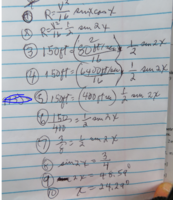 ① R = v²/16 sin x cos x
② R = v²/16 · 1/2 sin 2x
③ 150ft = (80ft/sec)²/16 · 1/2 sin 2x
④ 150ft = (6400ft/sec/16) · 1/2 sin 2x
⑤ 150ft = (400ft/sec) 1/2 sin 2x
⑥ 150/400 = 1/2 sin 2x
⑦ 3/8 = 1/2 sin 2x
⑧ sin 2x = 3/4
⑨ 2x = 48.59°
⑩ x = 24.29°